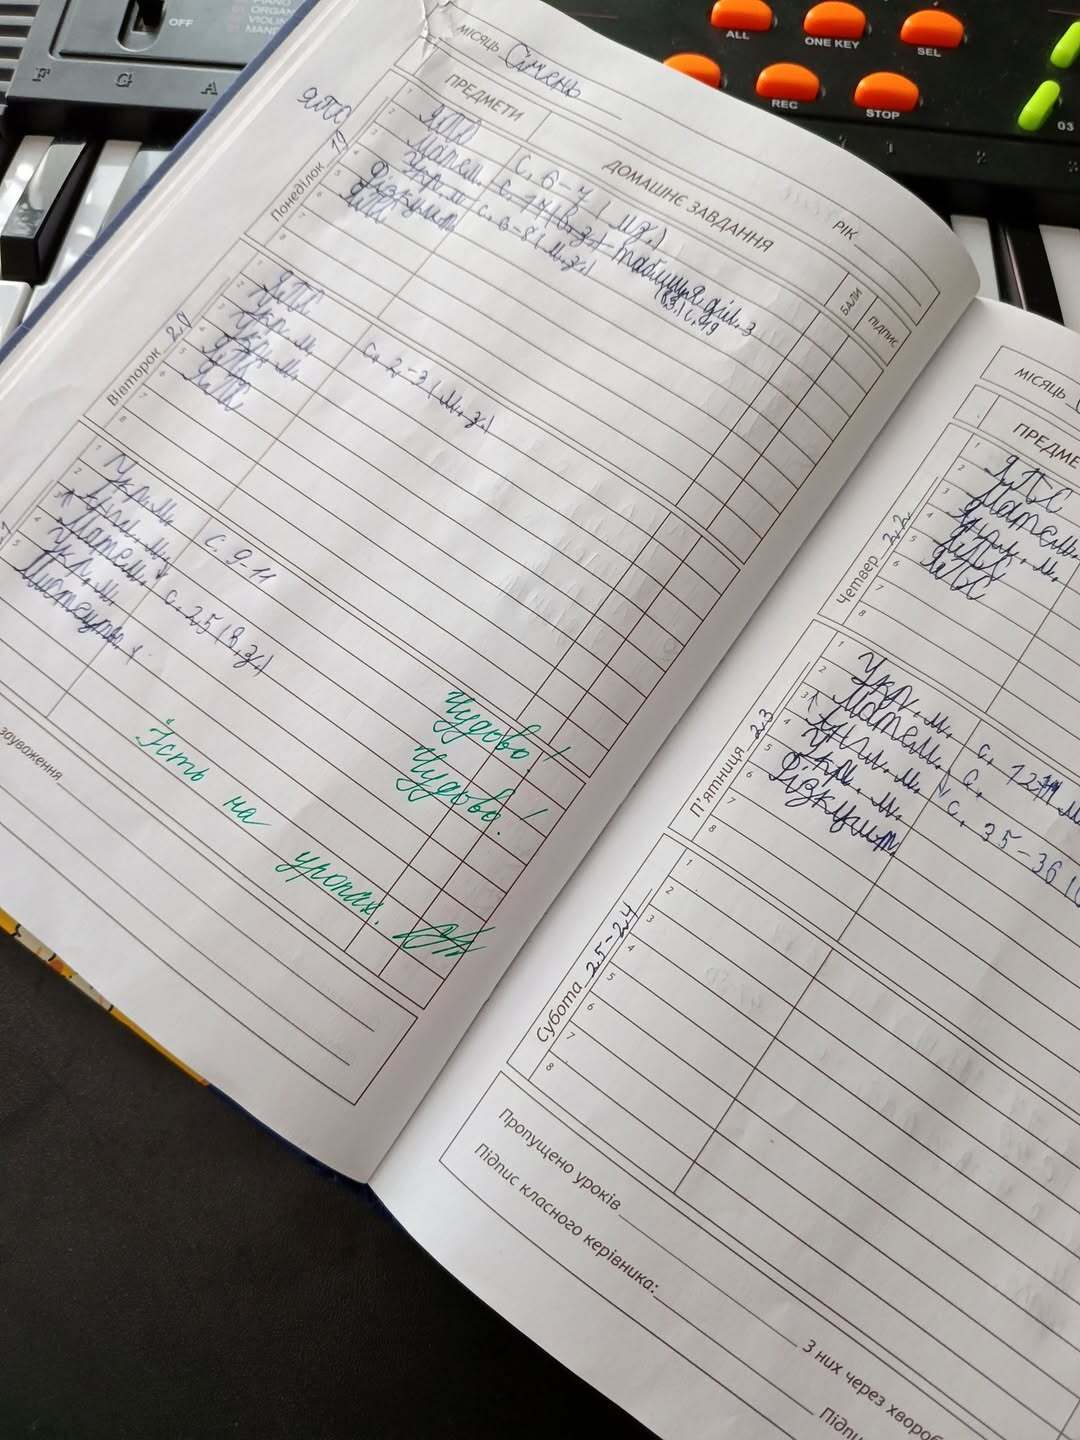 OFF
PIANO
ORGAN
VIOLIN
F G A
ALL
ONE KEY
SEL
REC
STOP
03
1 2
МІСЯЦЬ Січень
РІК
ПРЕДМЕТИ
ДОМАШНЄ ЗАВДАННЯ
БАЛИ
ПІДПИС
ЯПС
Понеділок 19
1 ЯПС с. 6-7
2 Матем. с. 14
3 Укр. м. с. 6-8 (м.з.)
4 Фізкульт
5 ЯПС
6
7
8
Вівторок 20
1 ЯПС
2 Укр. м. с. 2-3 (м.з.)
3 Укр. м.
4 ЯПС
5 ЯПС
6
7
8
1 Укр. м. с. 9-11
2 Англ. м.
3 Матем. с. 25 (в.з.)
4 Укр. м.
5 Мистецтво
Чудово!
Чудово!
Їсть на уроках.
зауваження
МІСЯЦЬ
ПРЕДМЕ
Четвер 22
1 ЯПС
2 Матем.
3 Укр. м.
4 ЯПС
5 ЯПС
6
7
8
П'ятниця 23
1 Укр. м. с. 12
2 Матем. с.
3 Англ. м. с. 35-36
4 Укр. м.
5 Фізкульт.
6
7
8
Субота 25-24
1
2
3
4
5
6
7
8
Пропущено уроків
З них через хвороб
Підпис класного керівника:
Підпи